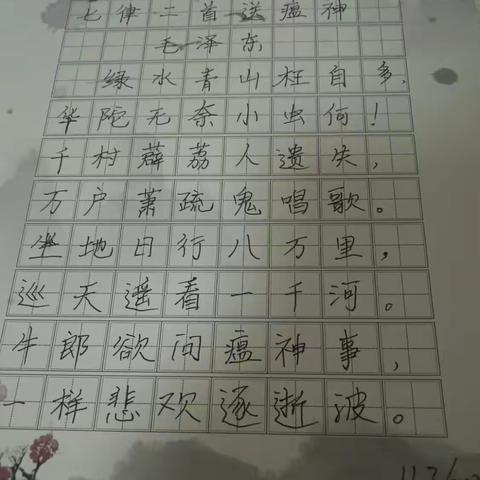 七律二首送瘟神
毛泽东
绿水青山枉自多,
华陀无奈小虫何!
千村薜荔人遗失,
万户萧疏鬼唱歌。
坐地日行八万里,
巡天遥看一千河。
牛郎欲问瘟神事,
一样悲欢逐逝波。